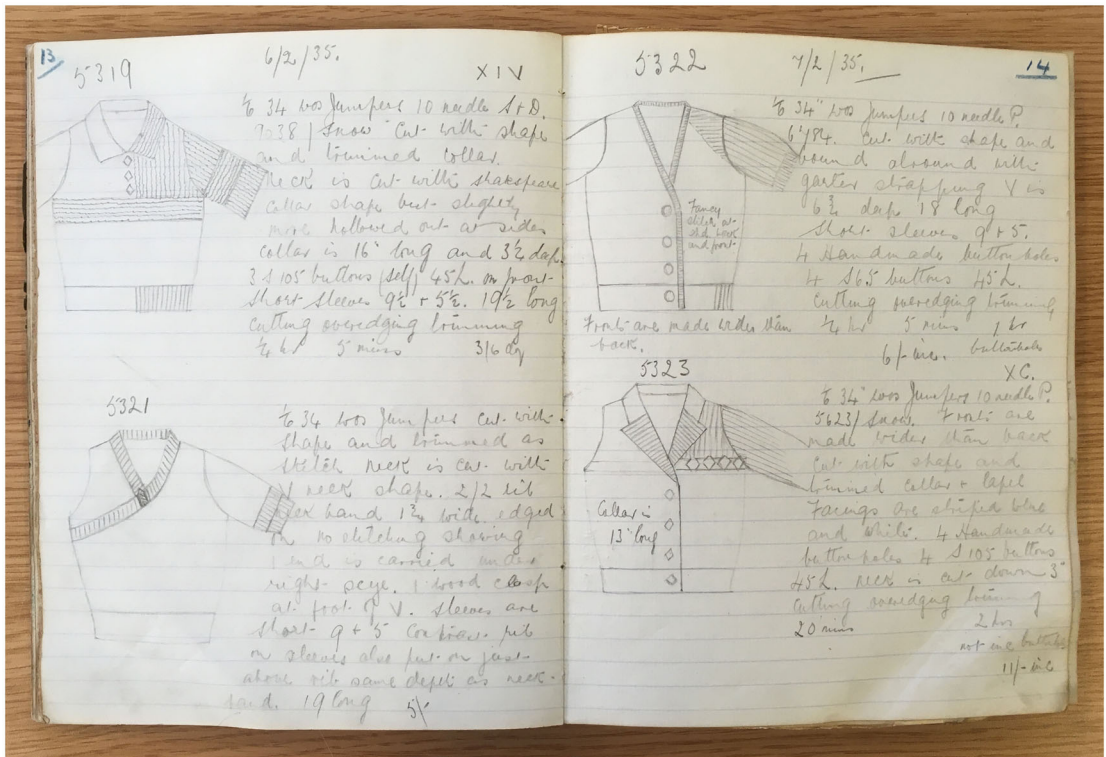 13
5319
6/2/35.
XIV
1/6 34 wos Jumpers 10 needle S+D.
9038/Snow Cut with shape
and trimmed collar.
Neck is cut with shakspeare
collar shape but slightly
more hollowed out at sides
collar is 16" long and 3½ deep
3 S105 buttons (self) 45L. on front
Short sleeves 9½ + 5½. 19½ long
cutting overedging trimming
¼ hr 5 mins 3/6
5321
1/6 34 wos Jumpers cut with
shape and trimmed as
sketch neck is cut with
V neck shape. 2/2 rib
neck band 1¾ wide edged
on no stitching showing
1 end is carried under
right scye. 1 wood clasp
at foot of V. sleeves are
short 9 + 5 contrast rib
on sleeves also put on just
above rib same depth as neck-
band. 19 long 5/-
14
5322
7/2/35.
1/6 34" wos Jumpers 10 needle P.
cut with shape and
bound around with
garter strapping V is
6¾ deep 18 long
Short sleeves 9 + 5.
4 Handmade button holes
4 S65 buttons 45L.
cutting overedging trimming
¼ hr 5 mins 1 hr
buttonholes
6/- inc.
Fancy
stitch at
side back
and front
Fronts are made wider than
back.
5323
XC.
1/6 34" wos Jumpers 10 needle P.
5623/Snow. Fronts are
made wider than back
cut with shape and
trimmed collar + lapel
Facings are striped blue
and white. 4 Handmade
button holes 4 S105 buttons
45L. neck is cut down 3"
cutting overedging trimming
20 mins 2 hrs
not inc
11/- inc
Collar is
13" long